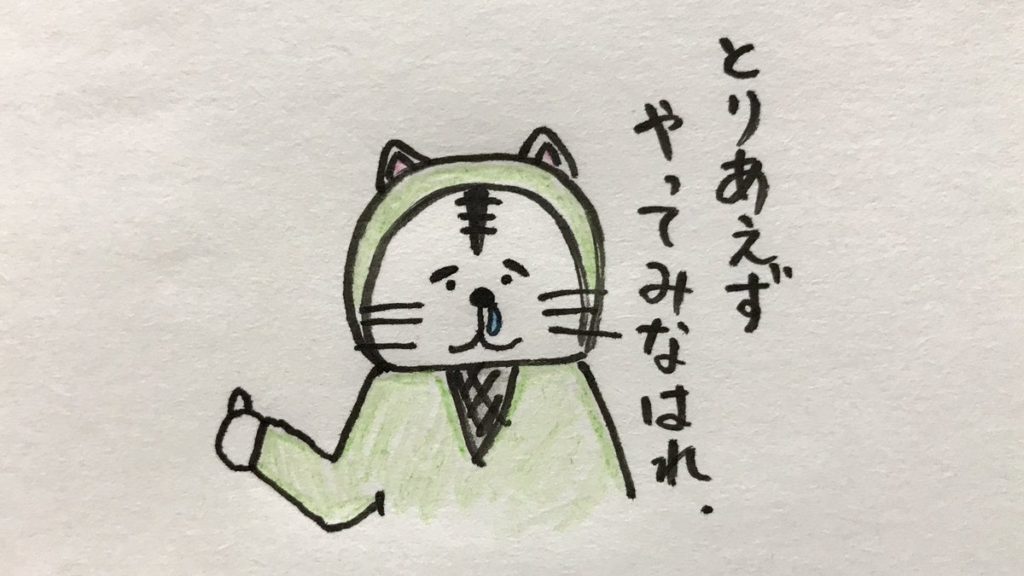 とりあえず
やってみなはれ.